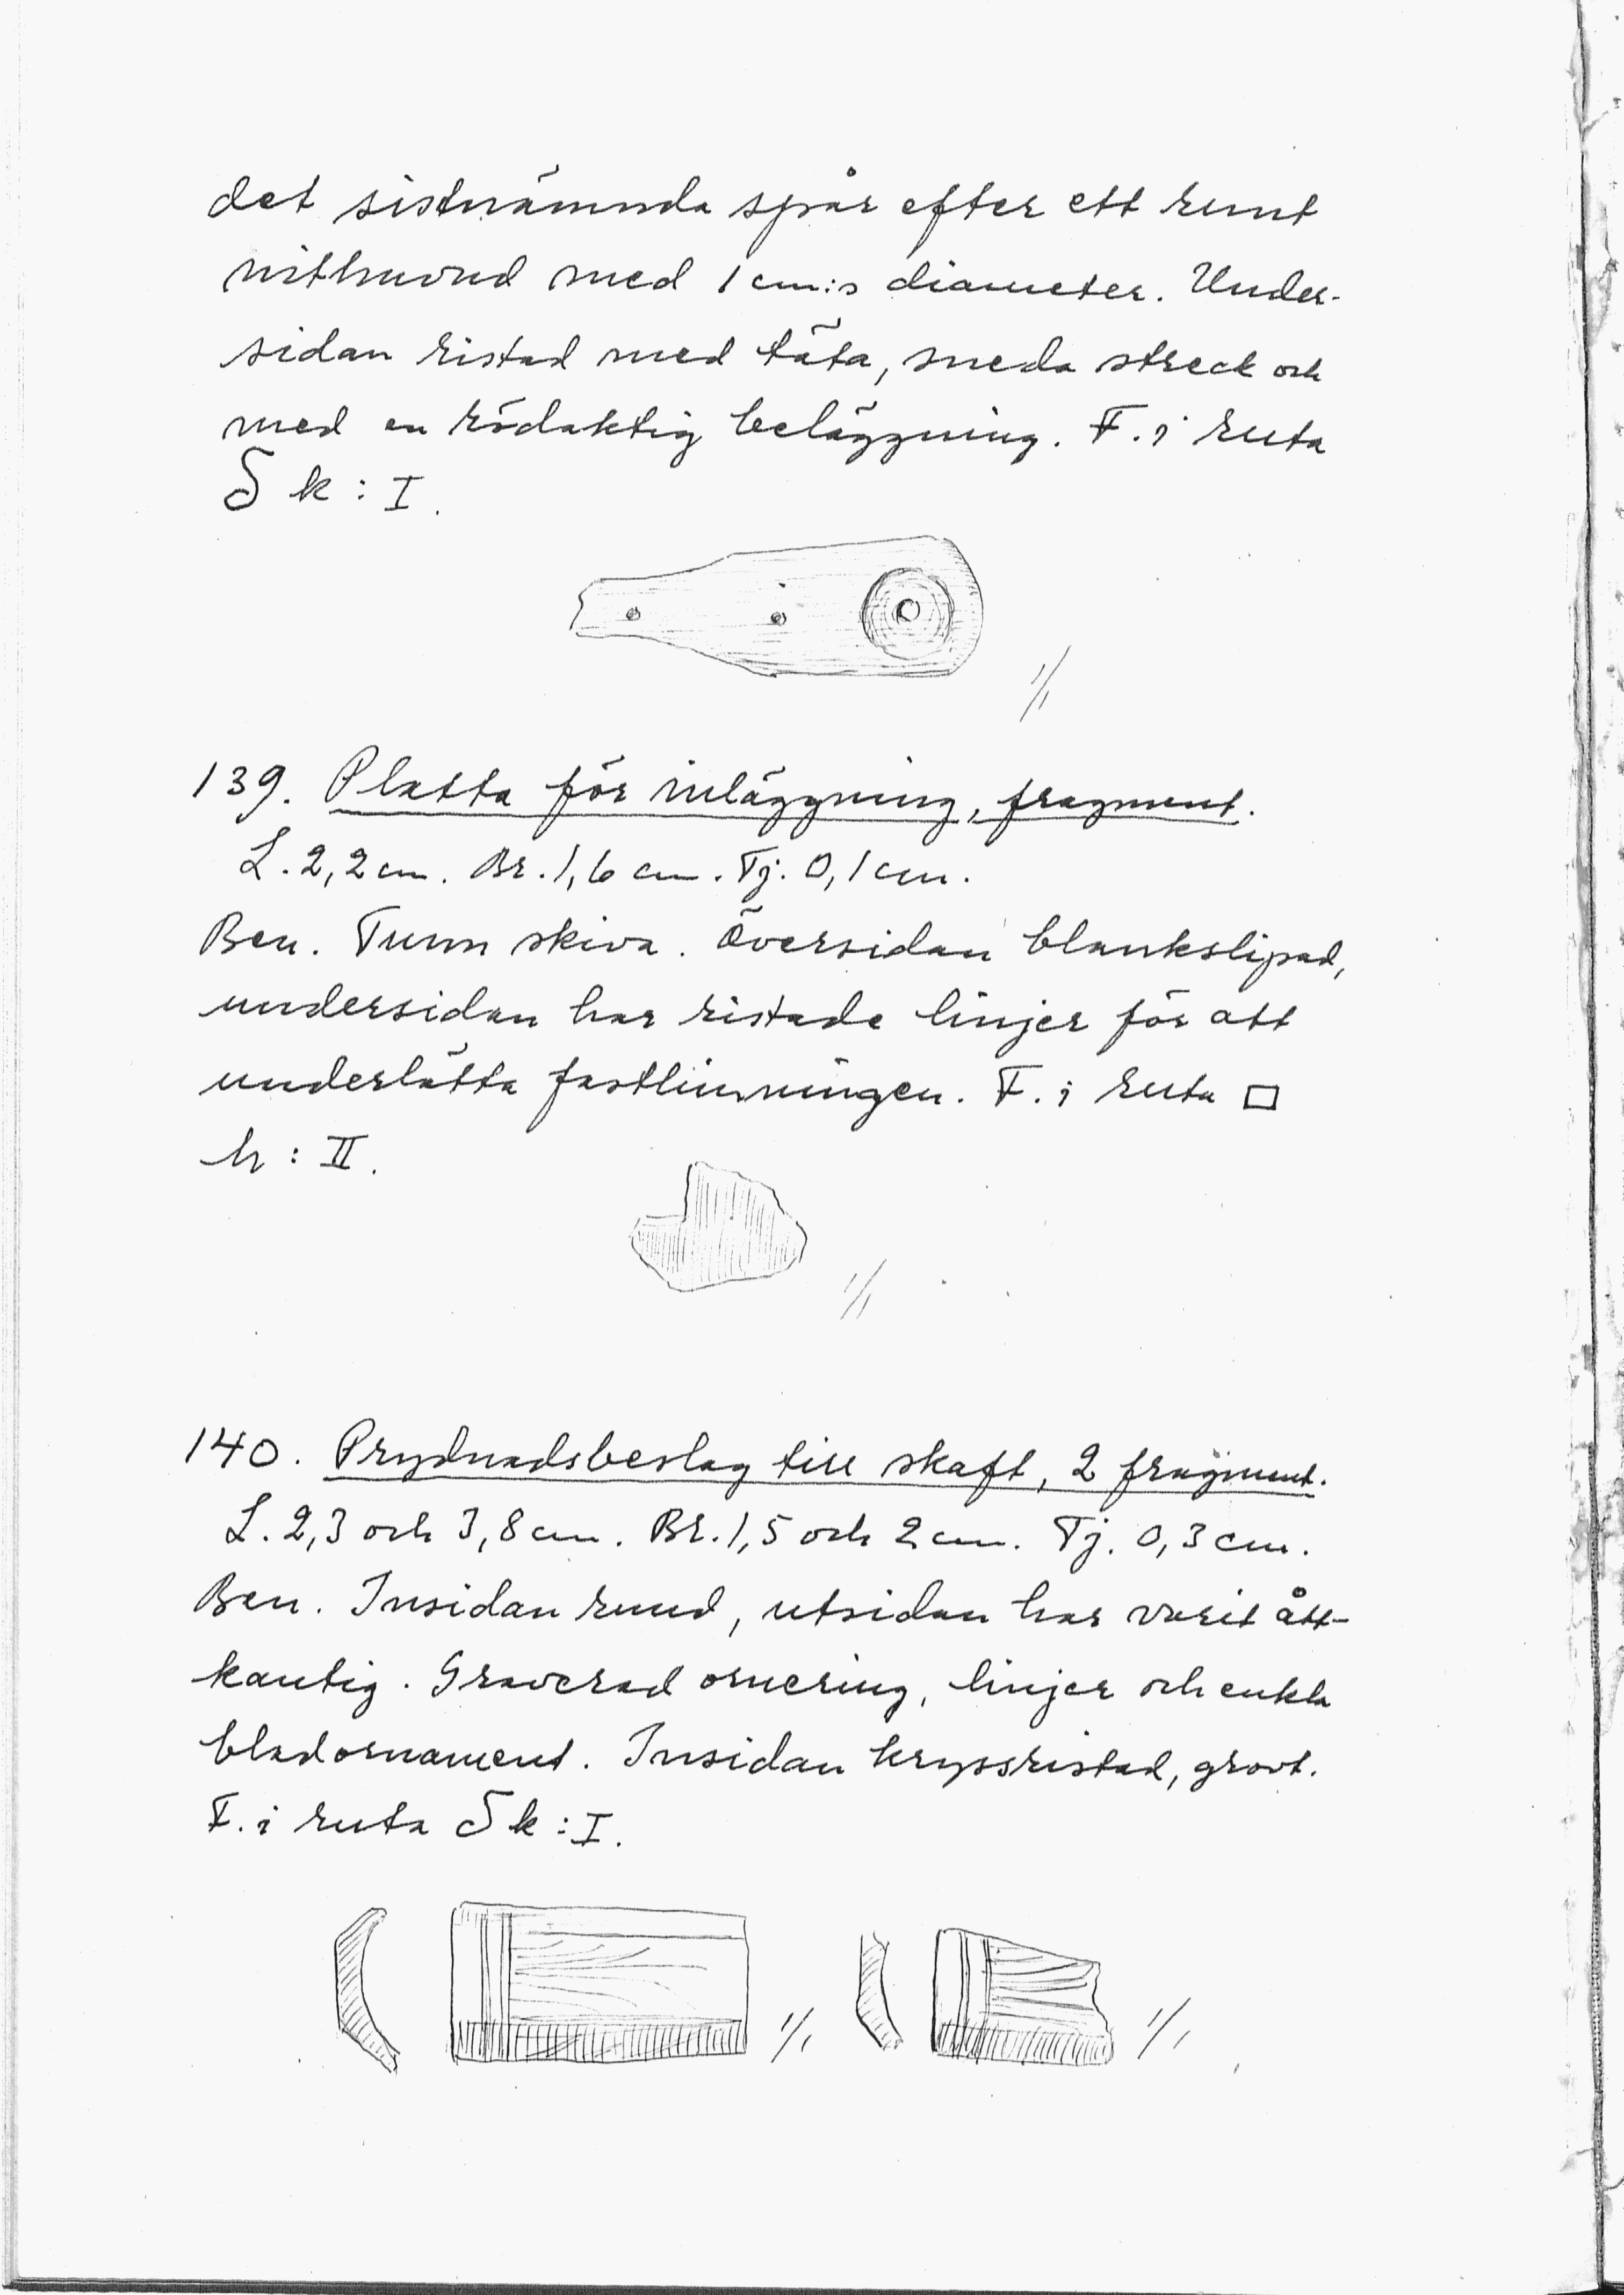 det sistnämnda spår efter ett runt
nithuvud med 1 cm:s diameter. Under-
sidan ristad med täta, sneda streck och
med en rödaktig beläggning. F. i ruta
δ k : I.
1/1
139. Platta för inläggning, fragment.
L. 2,2 cm. Br. 1,6 cm. Tj. 0,1 cm.
Ben. Tunn skiva. Översidan blankslipad,
undersidan har ristade linjer för att
underlätta fastlimningen. F. i ruta □
h : II.
1/1
140. Prydnadsbeslag till skaft, 2 fragment.
L. 2,3 och 3,8 cm. Br. 1,5 och 2 cm. Tj. 0,3 cm.
Ben. Insidan rund, utsidan har varit ått-
kantig. Graverad ornering, linjer och enkla
bladornament. Insidan kryssristad, grovt.
F. i ruta δ k : I.
1/1 1/1